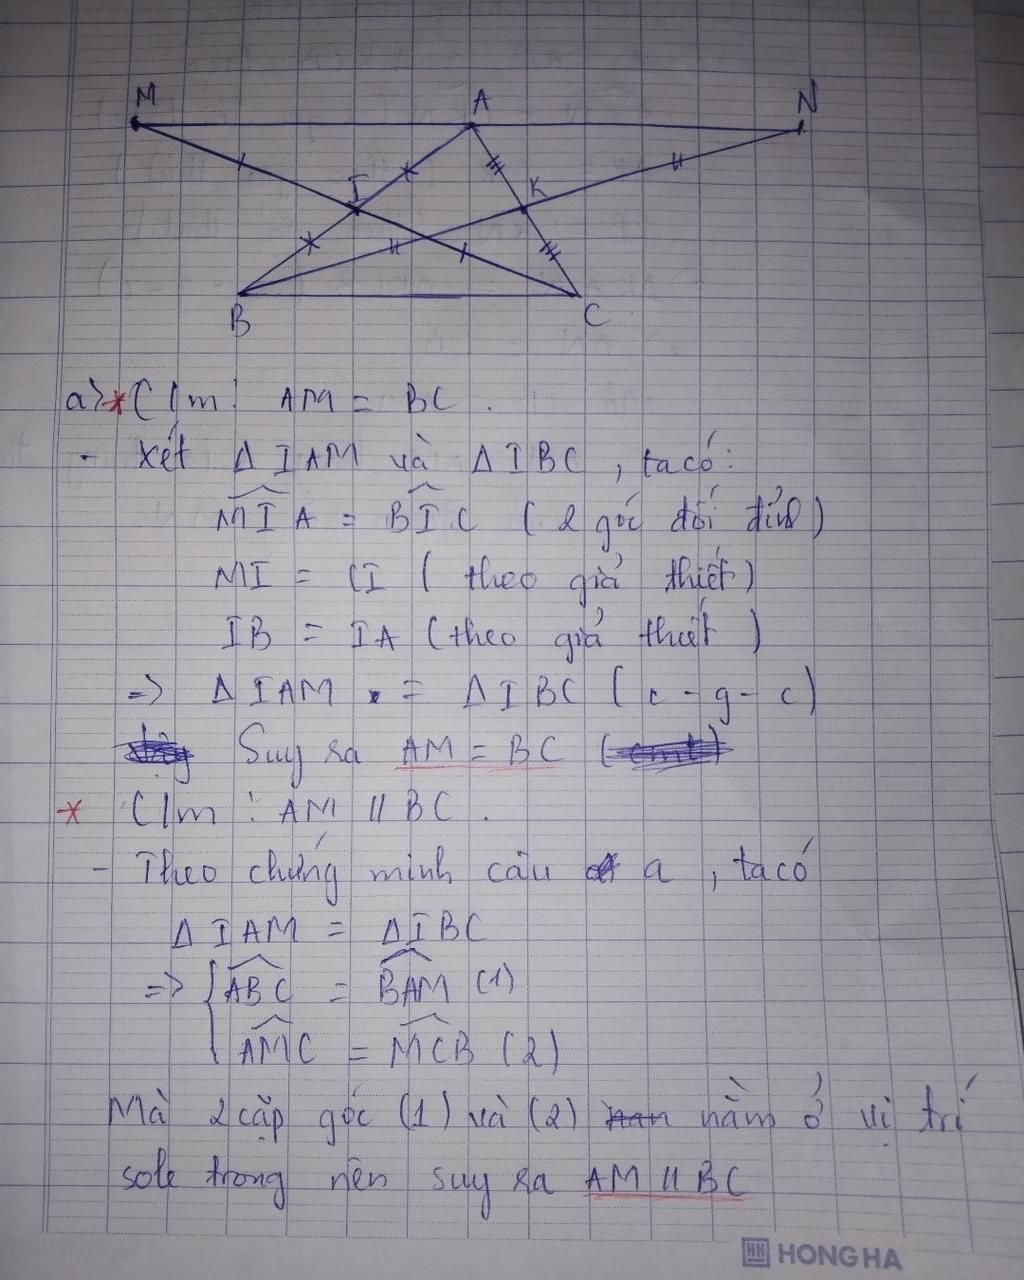 M A N
I K
B C
a) * C/m : AM = BC .
- Xét Δ IAM và Δ IBC , ta có:
MIA = BIC ( 2 góc đối đỉnh )
MI = CI ( theo giả thiết )
IB = IA ( theo giả thiết )
=> Δ IAM = Δ IBC ( c - g - c )
Suy ra AM = BC
* C/m : AM // BC .
- Theo chứng minh câu a , ta có
Δ IAM = Δ IBC
=> { ABC = BAM (1)
AMC = MCB (2)
Mà 2 cặp góc (1) và (2) nằm ở vị trí
sole trong nên suy ra AM // BC
HONG HA